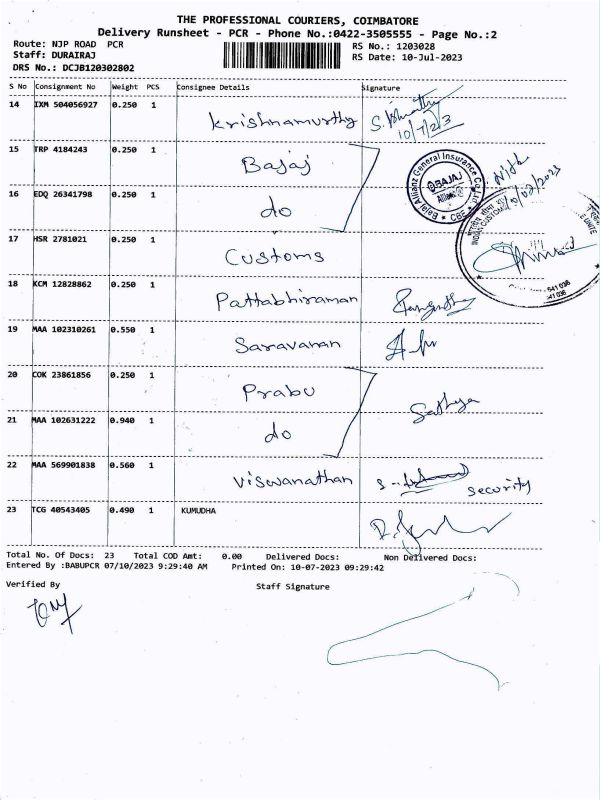 THE PROFESSIONAL COURIERS, COIMBATORE
Delivery Runsheet - PCR - Phone No.:0422-3505555 - Page No.:2
Route: NJP ROAD PCR
RS No.: 1203028
Staff: DURAIRAJ
RS Date: 10-Jul-2023
DRS No.: DCJB120302802
S No Consignment No Weight PCS Consignee Details Signature
14 IXM 504056927 0.250 1 Krishnamurthy
10/7/23
15 TRP 4184243 0.250 1 Bajaj
Bajaj Allianz General Insurance Co. Ltd. * CBE *
BAJAJ
Allianz
16 EDQ 26341798 0.250 1 do
17 HSR 2781021 0.250 1 Customs
INDIAN CUSTOMS
641 036
18 KCM 12828862 0.250 1 Pattabhiraman
19 MAA 102310261 0.550 1 Saravanan
20 COK 23861856 0.250 1 Prabu
Sathya
21 MAA 102631222 0.940 1 do
22 MAA 569901838 0.560 1 Viswanathan
security
23 TCG 40543405 0.490 1 KUMUDHA
Total No. Of Docs: 23 Total COD Amt: 0.00 Delivered Docs: Non Delivered Docs:
Entered By :BABUPCR 07/10/2023 9:29:40 AM Printed On: 10-07-2023 09:29:42
Verified By Staff Signature